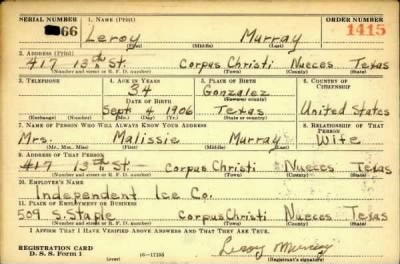 SERIAL NUMBER 1. NAME (Print) ORDER NUMBER
66 Leroy Murray 1415
(First) (Middle) (Last)
2. ADDRESS (Print)
417 13th St. Corpus Christi Nueces Texas
(Number and street or R. F. D. number) (Town) (County) (State)
3. TELEPHONE 4. AGE IN YEARS 5. PLACE OF BIRTH 6. COUNTRY OF CITIZENSHIP
34 Gonzalez
DATE OF BIRTH (Town or county)
Sept 4 1906 Texas United States
(Exchange) (Number) (Mo.) (Day) (Yr.) (State or country)
7. NAME OF PERSON WHO WILL ALWAYS KNOW YOUR ADDRESS 8. RELATIONSHIP OF THAT PERSON
Mrs. Malissie Murray Wife
(Mr., Mrs., Miss) (First) (Middle) (Last)
9. ADDRESS OF THAT PERSON
417 13th St. Corpus Christi Nueces Texas
(Number and street or R. F. D. number) (Town) (County) (State)
10. EMPLOYER'S NAME
Independent Ice Co.
11. PLACE OF EMPLOYMENT OR BUSINESS
509 S. Staple Corpus Christi Nueces Texas
(Number and street or R. F. D. number) (Town) (County) (State)
I AFFIRM THAT I HAVE VERIFIED ABOVE ANSWERS AND THAT THEY ARE TRUE.
REGISTRATION CARD Leroy Murray
D. S. S. Form 1 (over) (Registrant's signature)